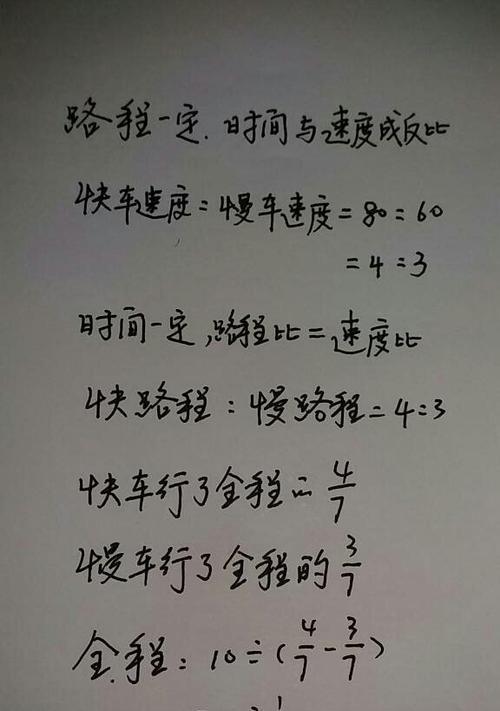 路程一定.时间与速度成反比
快车速度:慢车速度=80:60
=4:3
时间一定,路程比=速度比
快路程:慢路程=4:3
快车行了全程的4/7
慢车行了全程的3/7
全程:10÷(4/7-3/7)